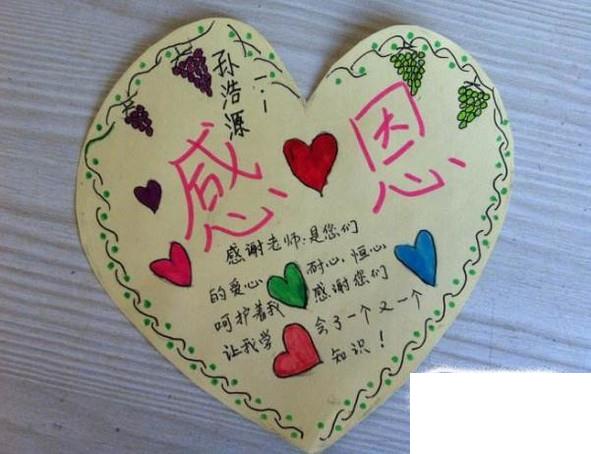 孙浩源
感恩
感谢老师:是您们
的爱心、耐心、恒心
呵护着我 感谢您们
让我学会了一个又一个
知识!